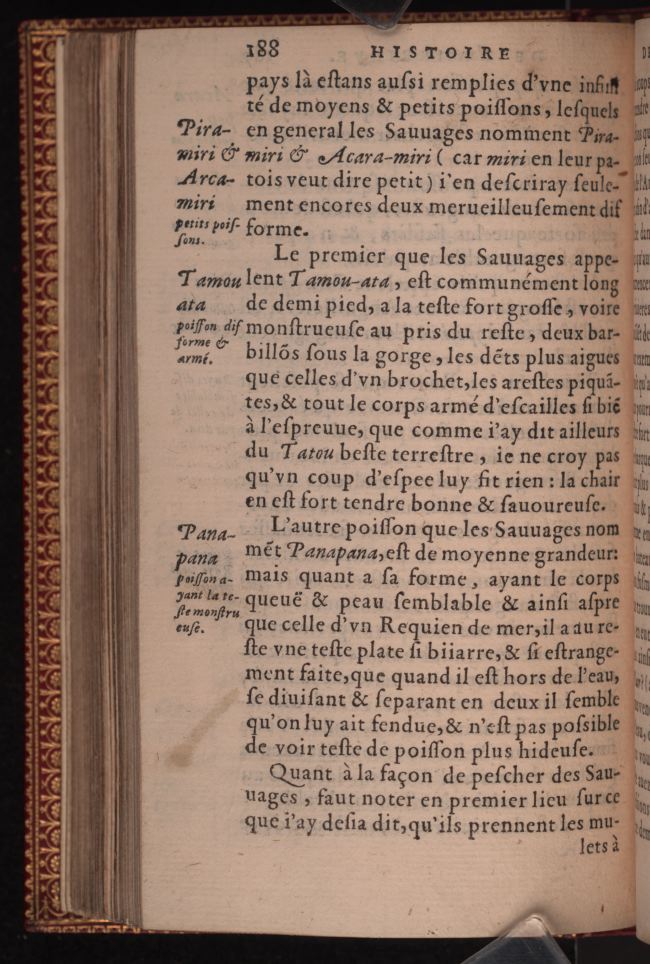 188 HISTOIRE
pays là eſtans auſsi remplies d'vne infini
té de moyens & petits poiſſons, leſquels
en general les Sauuages nomment Pira-
miri & Acara-miri ( car miri en leur pa-
tois veut dire petit ) i'en deſcriray ſeule-
ment encores deux merueilleuſement dif
forme.
Le premier que les Sauuages appe-
lent Tamou-ata, eſt communément long
de demi pied, a la teſte fort groſſe, voire
monſtrueuſe au pris du reſte, deux bar-
billõs ſous la gorge, les dẽts plus aigues
que celles d'vn brochet, les areſtes piquã-
tes, & tout le corps armé d'eſcailles ſi biẽ
à l'eſpreuue, que comme i'ay dit ailleurs
du Tatou beſte terreſtre, ie ne croy pas
qu'vn coup d'eſpee luy fit rien : la chair
en eſt fort tendre bonne & ſauoureuſe.
L'autre poiſſon que les Sauuages nom
mẽt Panapana, eſt de moyenne grandeur:
mais quant a ſa forme, ayant le corps
queuë & peau ſemblable & ainſi aſpre
que celle d'vn Requien de mer, il a au re-
ſte vne teſte plate ſi bijarre, & ſi eſtrange-
ment faite, que quand il eſt hors de l'eau,
ſe diuiſant & ſeparant en deux il ſemble
qu'on luy ait fendue, & n'eſt pas poſsible
de voir teſte de poiſſon plus hideuſe.
Quant à la façon de peſcher des Sau-
uages, faut noter en premier lieu ſur ce
que i'ay deſia dit, qu'ils prennent les mu-
lets à
Pira-
miri &
Arca-
miri
petits poiſ-
ſons.
Tamou
ata
poiſſon dif
forme &
armé.
Pana-
pana
poiſſon a-
yant la te-
ſte monſtru
euſe.